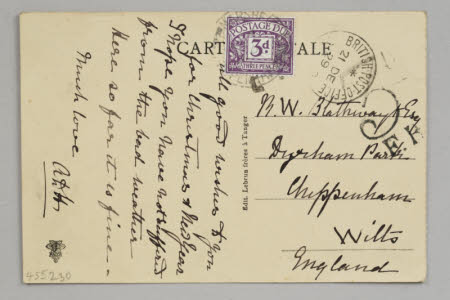 CARTE POSTALE
POSTAGE DUE
3d.
THREE PENCE
BRITISH POST OFFICE
21 DE 29
All good wishes to you
for Christmas & New Year
I hope you have not suffered
from the bad weather
Here so far it is fine.
Much love
R. W. Blathwayt Esq
Dyrham Park
Chippenham
Wilts
England
Edit. Lebrun frères à Tanger
455230